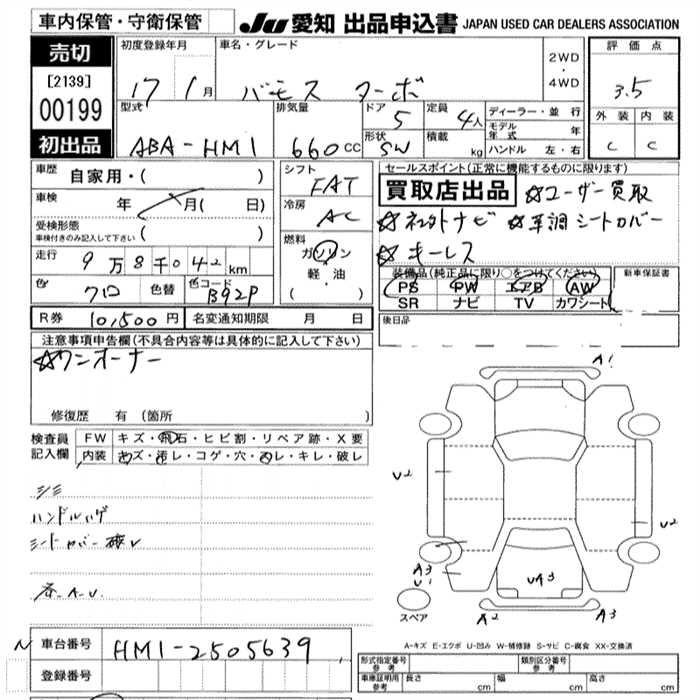 車内保管・守衛保管
JU 愛知 出品申込書 JAPAN USED CAR DEALERS ASSOCIATION
売切
[2139]
00199
初出品
初度登録年月
17 1月
車名・グレード
バモス ターボ
2WD
・
4WD
評価点
3.5
外装 内装
C C
型式
ABA-HM1
排気量
660cc
ドア 5
定員 4人
形状 SW
積載 kg
ディーラー・並行
モデル年式 年
ハンドル 左・右
車歴
自家用・( )
車検
年 月( 日)
受検形態
車検付きのみ記入して下さい ( )
走行 9万8千042km
色 クロ 色替 色コード B92P
シフト
FAT
冷房
AC
燃料
ガソリン
軽・油
( ・ )
セールスポイント(正常に機能するものに限ります)
買取店出品 ☆ユーザー買取
☆社外ナビ ☆革調シートカバー
☆キーレス
装備品(純正品に限り○をつけてください)
PS PW エアB AW
SR ナビ TV カワシート
新車保証書
後日品
R券 10,500円 名変通知期限 月 日
注意事項申告欄(不具合内容等は具体的に記入して下さい)
☆ワンオーナー
修復歴 有(箇所 )
検査員記入欄
FW キズ・飛石・ヒビ割・リペア跡・X要
内装 キズ・汚レ・コゲ・穴・スレ・キレ・破レ
シミ
ハンドルハゲ
シートカバー破レ
A-U
A1
U2
U2
A3
U1
UA3
A2
A3
スペア
A-キズ E-エクボ U-凹み W-補修跡 S-サビ C-腐食 XX-交換済
N 車台番号 HM1-2505639
登録番号
形式指定番号 参考
類別区分番号 参考
車庫証明用 参考 長さ cm 幅 cm 高さ cm